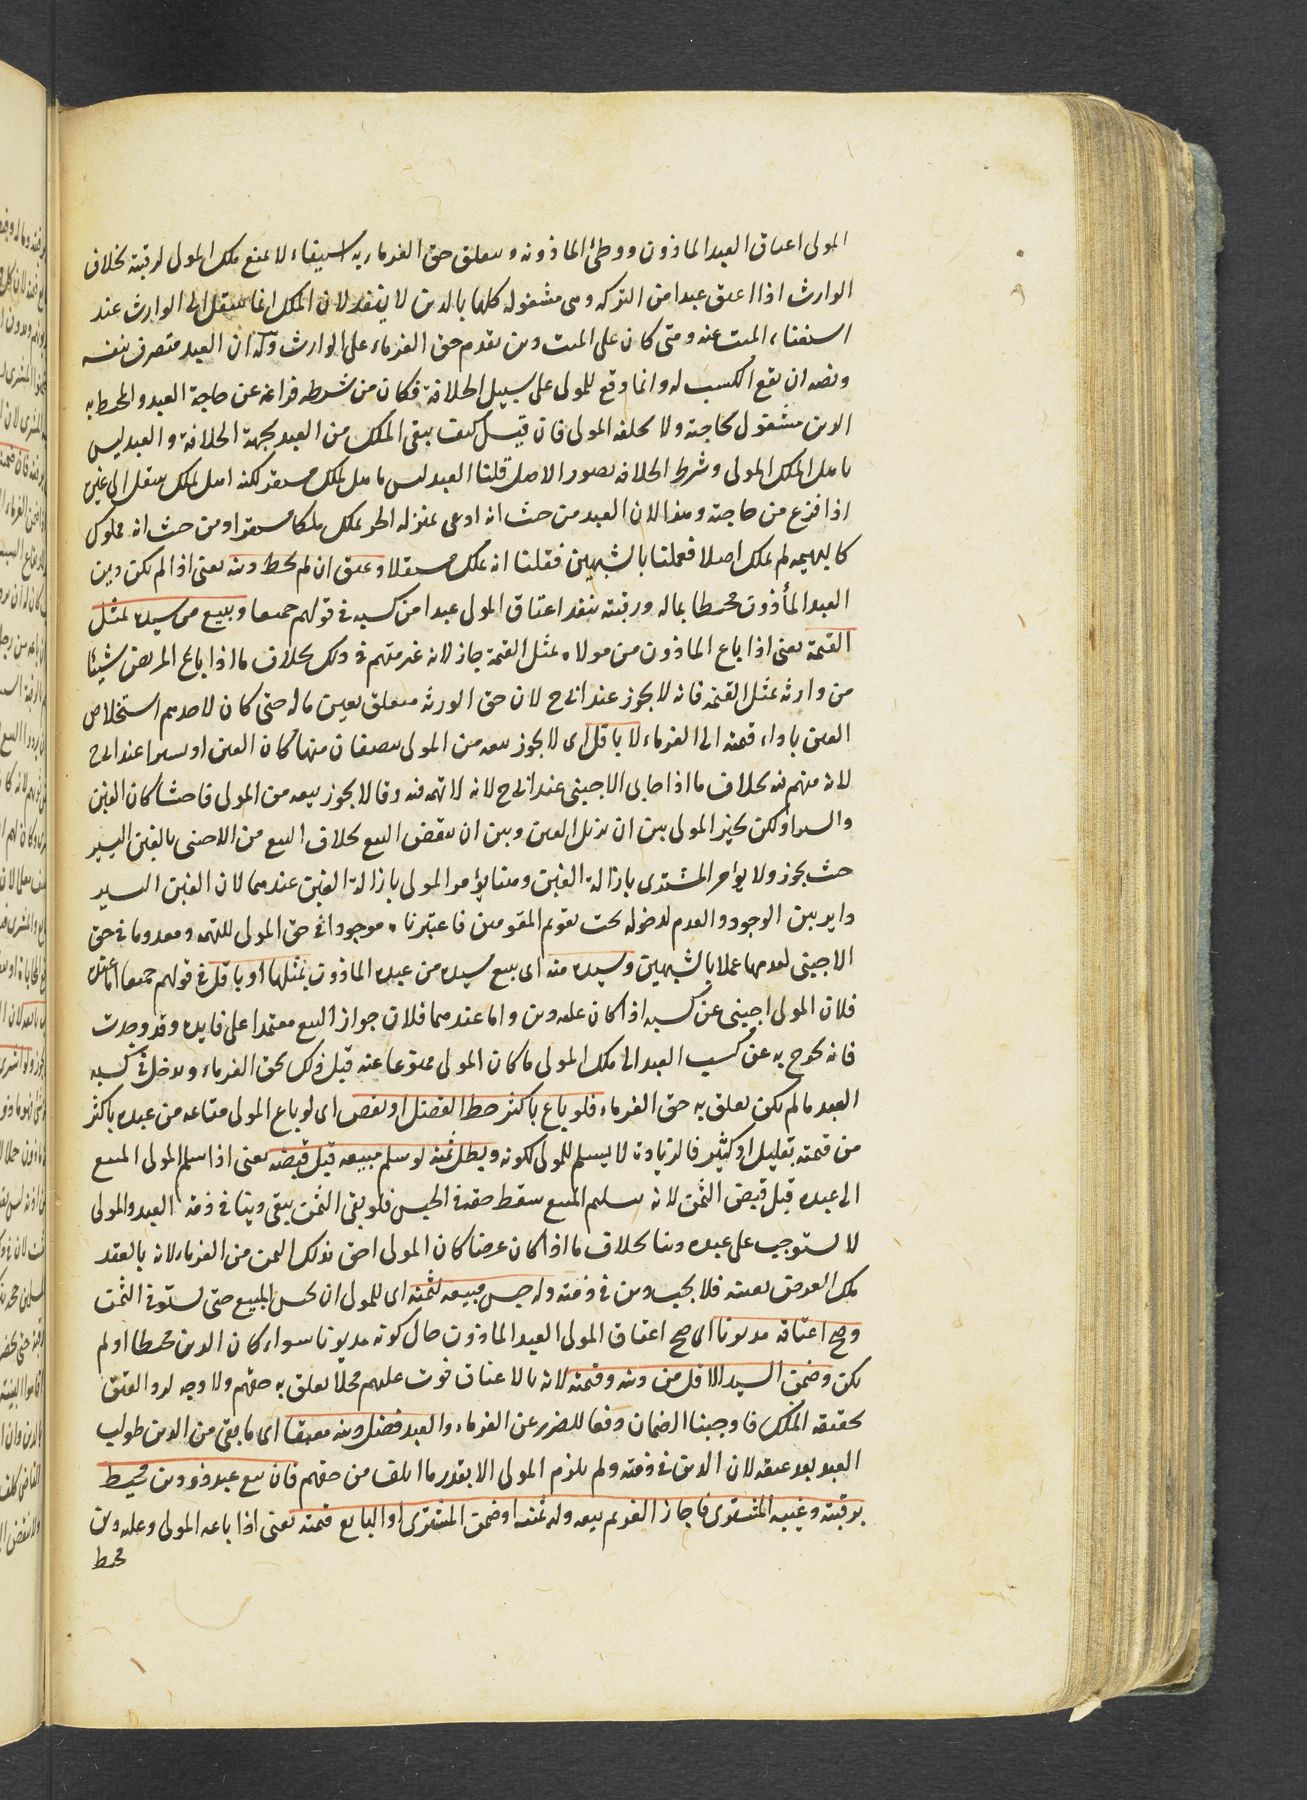 المولى اعتاق العبد الماذون ووطئ الماذونة وتعلق حق الغرماء به استيفاء لا يمنع ملك المولى لرقبته بخلاف
الوارث اذا اعتق عبدا من التركة وهى مشغولة كلها بالدين لا ينفذ لان الملك انما ينتقل الى الوارث عند
استغناء الميت عنه ومتى كان على الميت دين تقدم حق الغرماء على الوارث وله ان العبد متصرف لنفسه
وقصده ان يقع الكسب له وانما وقع للمولى على سبيل الخلافة فكان من شرطه فراغه عن حاجة العبد والمحيط به
الدين مشغول بحاجته ولا يخلفه المولى فان قيل كيف يبقى الملك من العبد بجهة الخلافة والعبد ليس
باهل الملك المولى وشرط الخلافة تصور الاصل قلنا العبد ليس باهل لملك مستقر لكنه اهل لملك ينتقل الى غيره
اذا فرغ من حاجته وهذا لان العبد من حيث انه ادمى بمنزلة الحر يملك ملكا مستقرا ومن حيث انه مملوك
كالبهيمة لم يملك اصلا فعملنا بالشبهين فقلنا انه يملك منتقلا وعتق ان لم يحط دينه يعنى اذا لم يكن دين
العبد المأذون محيطا بماله ورقبته ينفذ اعتاق المولى عبدا من كسبه فى قولهم جميعا وبيع من سيده بمثل
القيمة يعنى اذا باع الماذون من مولاه بمثل القيمة جاز لانه غير متهم فى ذلك بخلاف ما اذا باع المريض شيئا
من وارثه بمثل القيمة فانه لا يجوز عند ابى ح لان حق الورثة متعلق بعين ماله حتى كان لاحدهم استخلاص
العين باداء قيمته الى الغرماء لا باقل اى لا يجوز بيعه من المولى بنقصان منها كان الغبن او يسيرا عند ابى ح
لانه متهم فيه بخلاف ما اذا حابى الاجنبى عند ابى ح لانه لا تهمة فيه وقالا يجوز بيعه من المولى فاحشا كان الغبن
واليسير ولكن يخير المولى بين ان يزيل الغبن وبين ان ينقض البيع بخلاف البيع من الاجنبى بالغبن اليسير
حيث يجوز ولا يؤمر المشترى بازالة الغبن وهنا يؤمر المولى بازالة الغبن عندهما لان الغبن اليسير
داير بين الوجود والعدم لدخوله تحت تقويم المقومين فاعتبرناه موجودا فى حق المولى للتهمة ومعدوما فى حق
الاجنبى لعدمها عملا بالشبهين وسيده منه اى بيع سيده من عبده الماذون بمثلها او باقل فى قولهم جميعا اما عنده
فلان المولى اجنبى عن كسبه اذا كان عليه دين واما عندهما فلان جواز البيع معتمدا على فايدة وقد وجدت
فانه يخرج به عن كسب العبد الى ملك المولى ما كان المولى ممنوعا عنه قبل ذلك بحق الغرماء ويدخل فى كسب
العبد ما لم يكن تعلق به حق الغرماء فلو باع باكثر حط الفضل او نقض اى لو باع المولى متاعه من عبده باكثر
من قيمته بقليل او كثير فالزيادة لا يسلم للمولى لكونه ويبطل ثمنه لو سلم مبيعه قبل قبضه يعنى اذا سلم المولى المبيع
الى عبده قبل قبض الثمن لانه بتسليم المبيع سقط حقه فى الحبس فلو بقى الثمن يبقى دينا فى ذمة العبد والمولى
لا يستوجب على عبده دينا بخلاف ما اذا كان عرضا كان المولى احق بذلك الثمن من الغرماء لانه بالعقد
ملك العرض بعينه فلا يجب دين فى ذمته وله حبس مبيعه لثمنه اى للمولى ان يحبس المبيع حتى يستوفى الثمن
وصح اعتاقه مديونا اى صح اعتاق المولى العبد الماذون حال كونه مديونا سواء كان الدين محيطا او لم
يكن وضمن السيد الاقل من دينه وقيمته لانه بالاعتاق فوت عليهم محلا تعلق به حقهم ولا وجه لرد العتق
بحقيقة الملك فاوجبنا الضمان دفعا للضرر عن الغرماء والعبد فضل دينه معتقا اى ما بقى من الدين طولب
العبد بعد عتقه لان الدين فى ذمته ولم يلزم المولى الا بقدر ما اتلف من حقهم فان بيع عبد ذو دين محيط
برقبته وغيبه المشترى فاجاز الغريم بيعه وله ثمنه او ضمن المشترى او البايع قيمته يعنى اذا باعه المولى وعليه دين
محيط